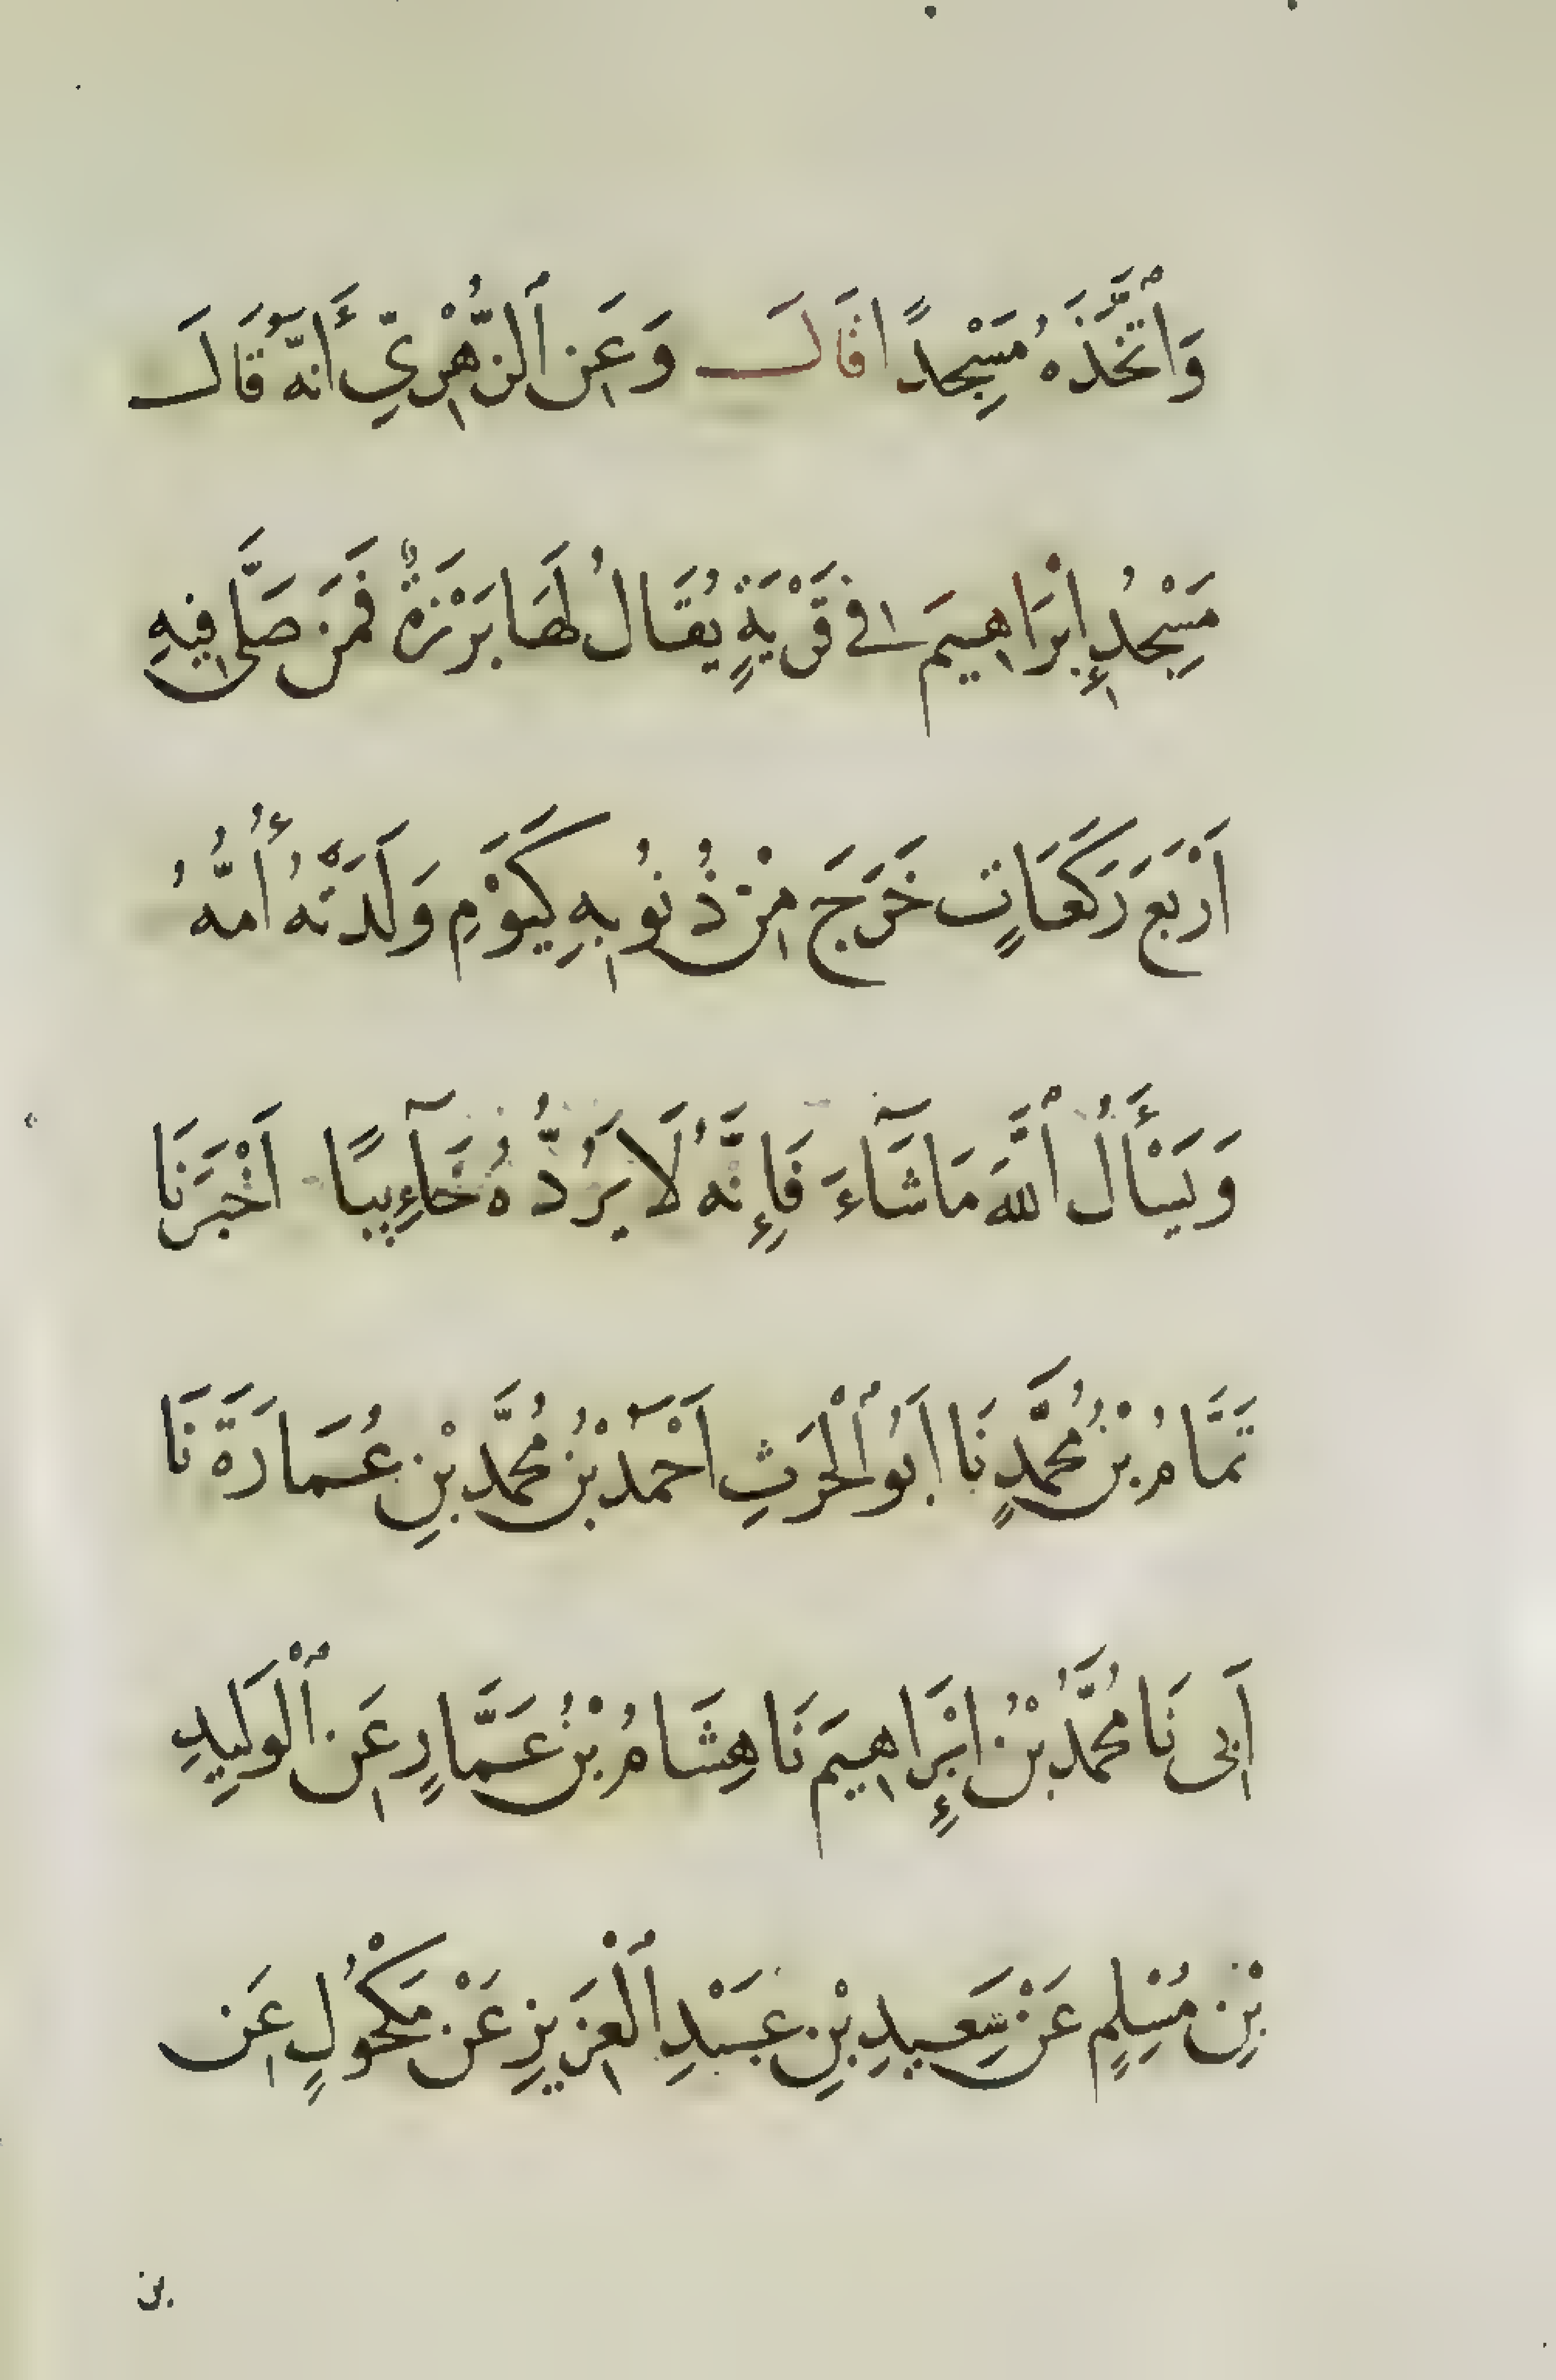 وَٱتَّخَذَهُ مَسْجِدًا قَالَ وَعَنِ ٱلزُّهْرِيِّ أَنَّهُ قَالَ
مَسْجِدُ إِبْرَاهِيمَ فِي قَرْيَةٍ يُقَالُ لَهَا بَرْزَةٌ فَمَنْ صَلَّى فِيهِ
اَرْبَعَ رَكَعَاتٍ خَرَجَ مِنْ ذُنُوبِهِ كَيَوْمِ وَلَدَتْهُ أُمُّهُ
وَيَسْأَلُ ٱللَّهَ مَا شَآءَ فَإِنَّهُ لَا يَرُدُّهُ خَآئِبًا اَخْبَرَنَا
تَمَّامُ بْنُ مُحَمَّدٍ نَا اَبُو ٱلْحَرِثِ اَحْمَدُ بْنُ مُحَمَّدِ بْنِ عُمَارَةَ نَا
اَبِى نَا مُحَمَّدُ بْنُ إِبْرَاهِيمَ نَا هِشَامُ بْنُ عَمَّارٍ عَنِ ٱلْوَلِيدِ
بْنِ مُسْلِمٍ عَنْ سَعِيدِ بْنِ عَبْدِ ٱلْعَزِيزِ عَنْ مَكْحُولٍ عَنِ
بن